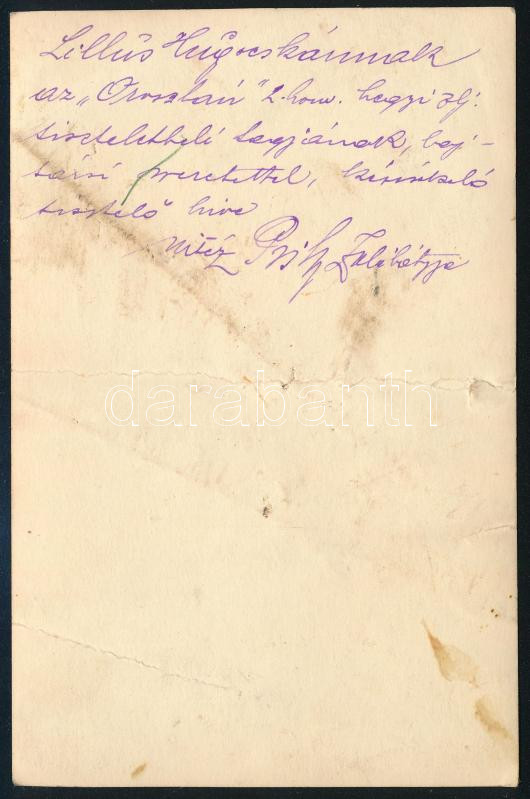 Lillus Hugocskámnak
az „Oroszlán" 2. how. hegyi zlj.
tiszteletbeli tagjának, baj-
társi szeretettel, kézcsókoló
tisztelő hive
vitéz Zolibátyja
darabanth